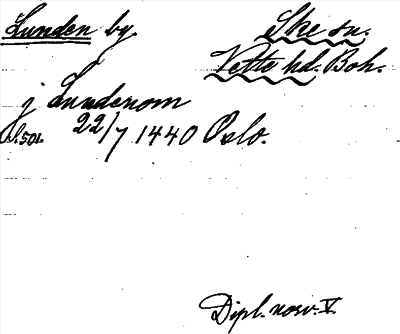 Lunden by.
Skee sn.
Vette hd. Boh.
j Lundenom
S. 501. 22/7 1440 Oslo.
Dipl. norv. V.